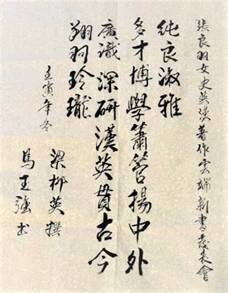 張良羽女史英漢著作雲端新書發表會
純良淑雅
多才博學簫管揚中外
廣識深研漢英貫古今
翔羽玲瓏
壬寅年冬
梁柳英撰
馬玉強书